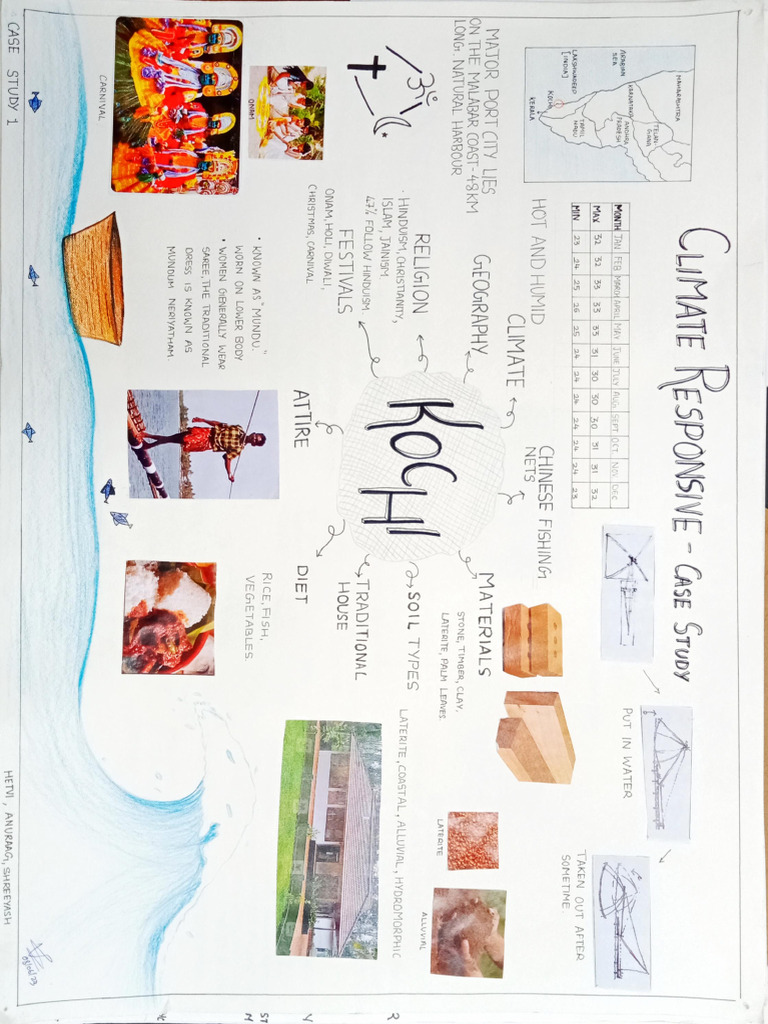 CLIMATE RESPONSIVE - CASE STUDY
MAHARASHTRA
ARABIAN
SEA
KARNATAKA
TELAN-
GANA
ANDHRA
PRADESH
LAKSHWADEEP
[INDIA]
KOCHI
TAMIL
NADU
KERALA
MAJOR PORT CITY LIES
ON THE MALABAR COAST-48KM
LONG. NATURAL HARBOUR
MONTH JAN FEB MARCH APRIL MAY JUNE JULY AUG SEPT OCT NOV DEC
MAX 32 32 33 33 33 31 30 30 30 31 31 32
MIN 23 24 25 26 25 24 24 24 24 24 24 23
HOT AND HUMID
CLIMATE
GEOGRAPHY
CHINESE FISHING
NETS
PUT IN WATER
TAKEN OUT AFTER
SOMETIME
ॐ
RELIGION
· HINDUISM, CHRISTIANITY,
ISLAM, JAINISM
47% FOLLOW HINDUISM
FESTIVALS
ONAM, HOLI, DIWALI,
CHRISTMAS, CARNIVAL
ONAM
CARNIVAL
KOCHI
MATERIALS
STONE, TIMBER, CLAY,
LATERITE, PALM LEAVES.
SOIL TYPES
LATERITE, COASTAL, ALLUVIAL, HYDROMORPHIC
LATERITE
ALLUVIAL
TRADITIONAL
HOUSE
ATTIRE
• KNOWN AS "MUNDU."
WORN ON LOWER BODY
• WOMEN GENERALLY WEAR
SAREE, THE TRADITIONAL
DRESS IS KNOWN AS
MUNDUM NERIYATHAM.
DIET
RICE, FISH,
VEGETABLES.
CASE STUDY 1
HETVI, ANURAAG, SHREEYASH